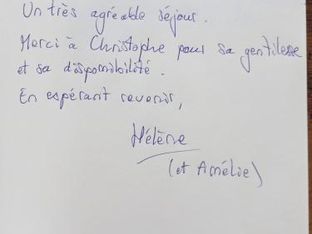 Un très agréable séjour.
Merci à Christophe pour sa gentillesse
et sa disponibilité.
En espérant revenir,
Hélène
(et Amélie)